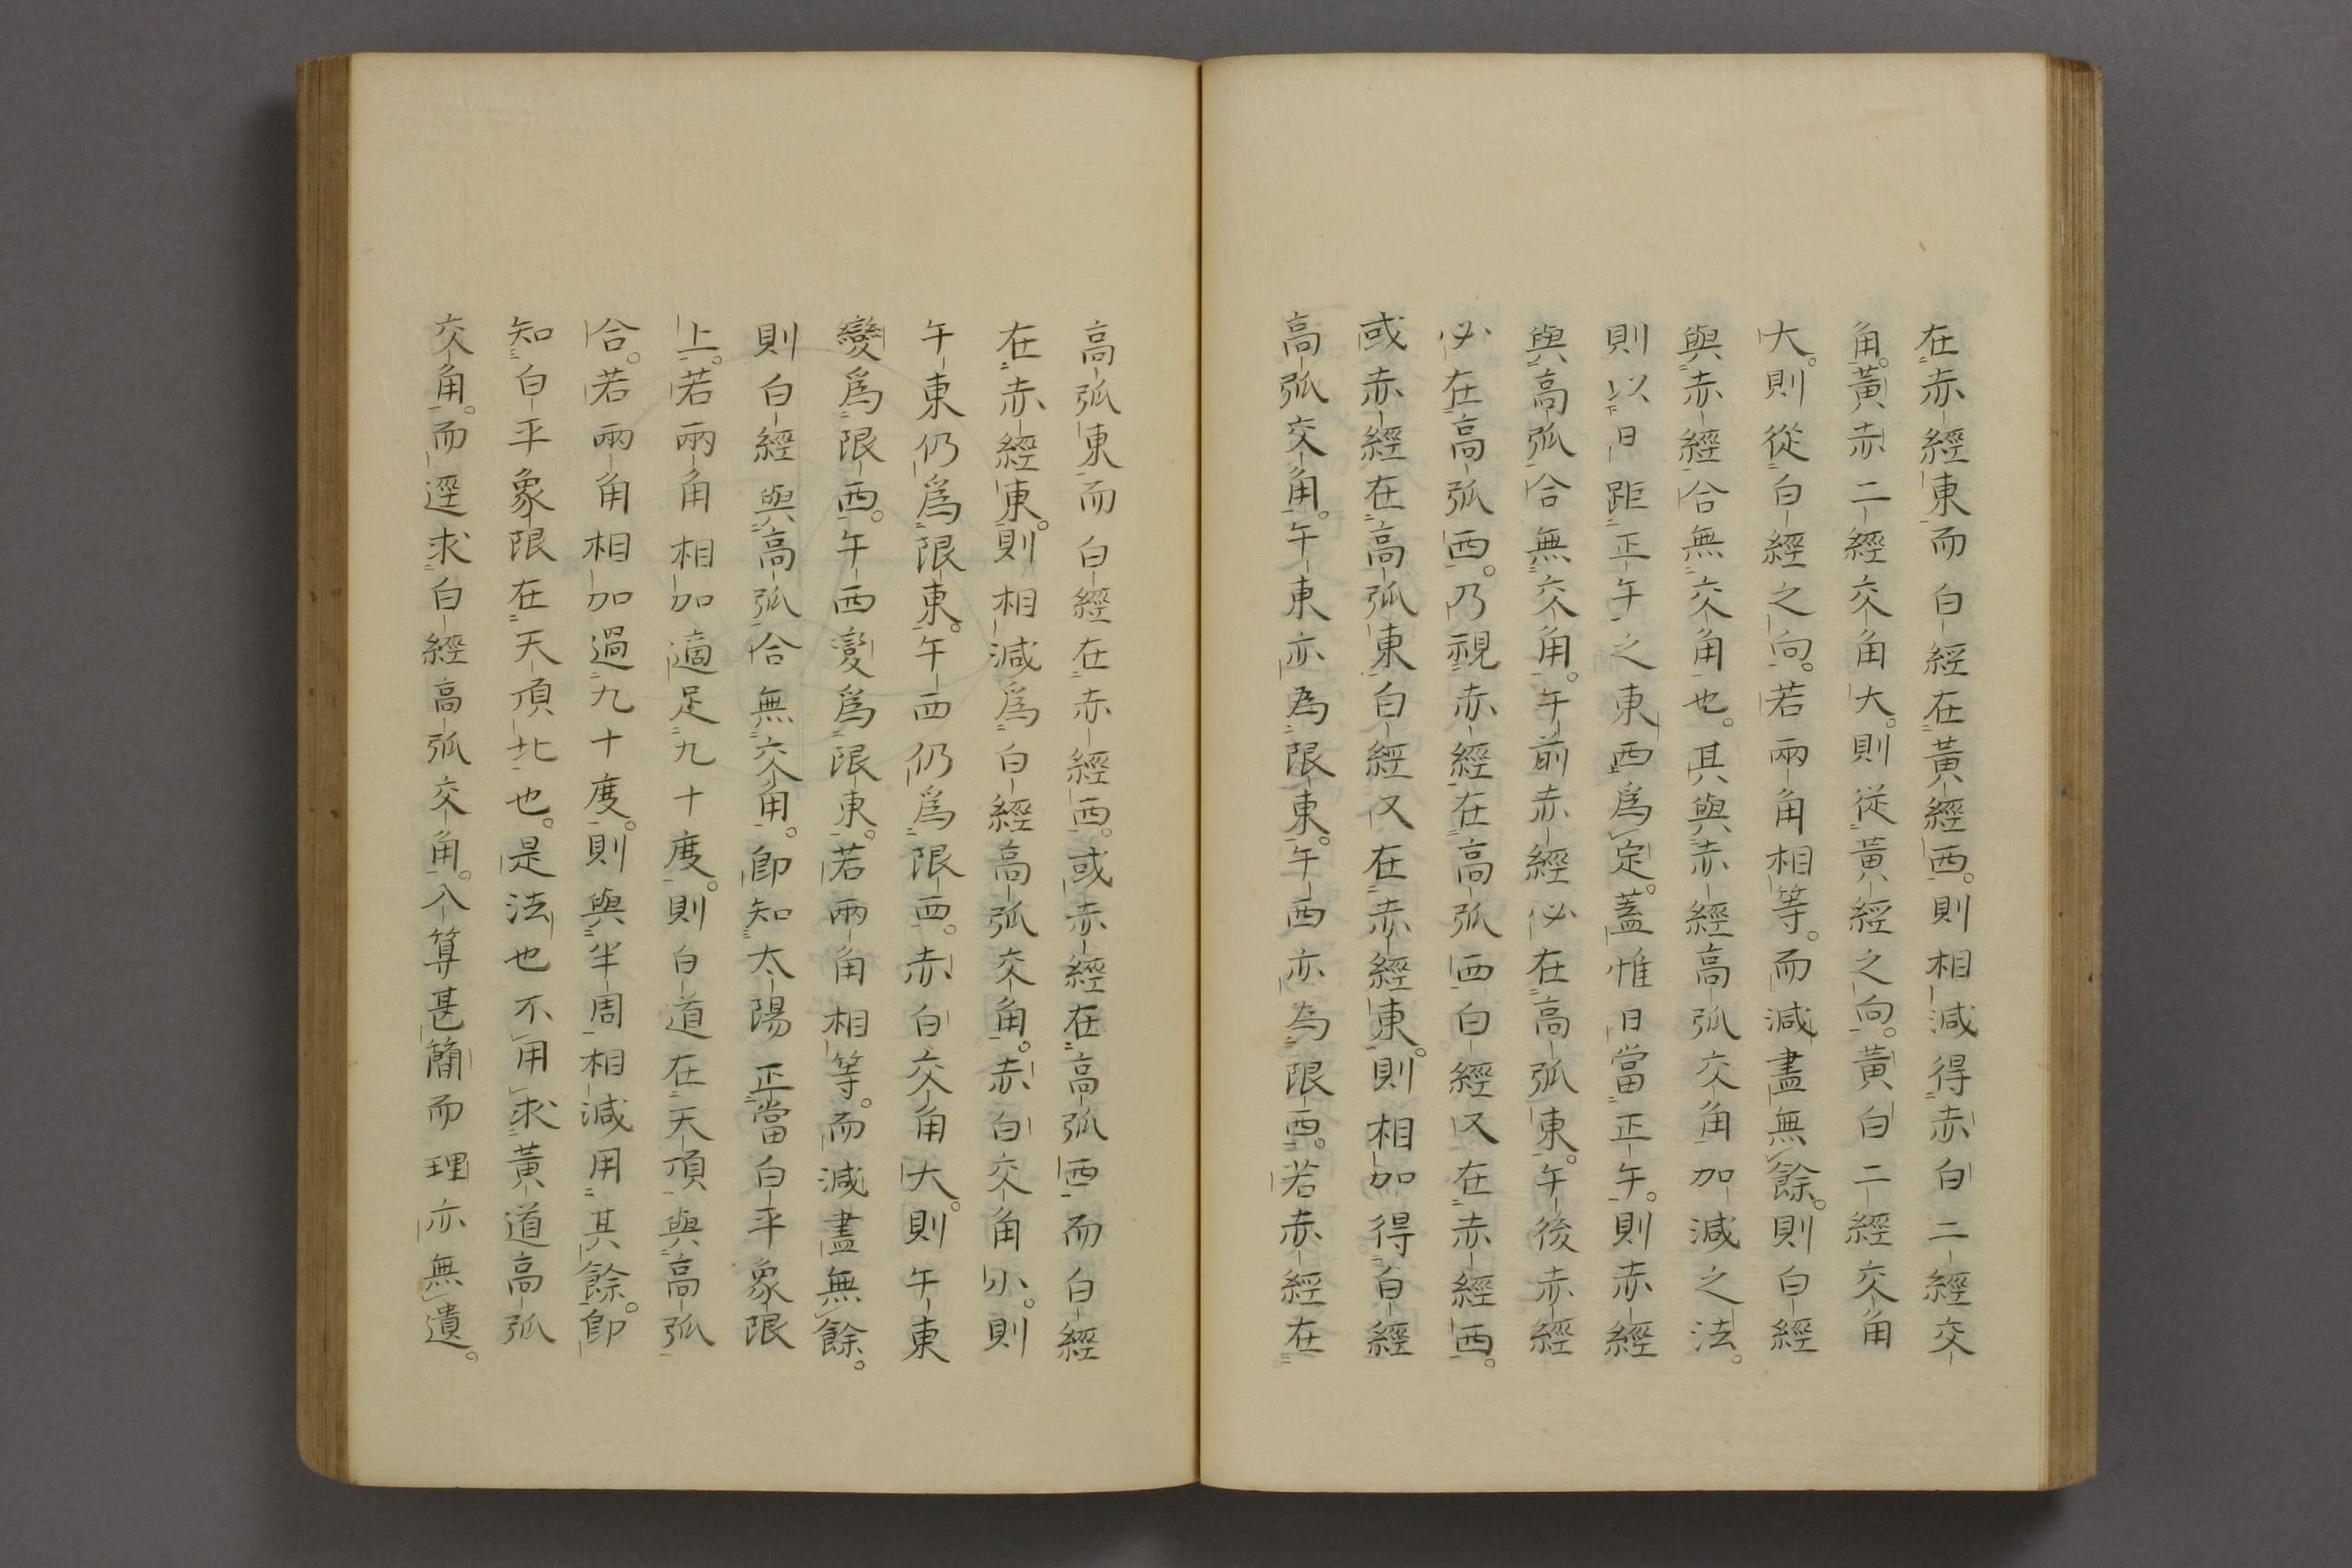 在赤經東而白經在黃經西。則相減得赤白二經交
角。黃赤二經交角大。則從黃經之向。黃白二經交角
大。則從白經之向。若兩角相等。而減盡無餘。則白經
與赤經合無交角也。其與赤經高弧交角加減之法。
則以日距正午之東西爲定。蓋惟日當正午。則赤經
與高弧合無交角。午前赤經必在高弧東。午後赤經
必在高弧西。乃視赤經在高弧西白經又在赤經西。
或赤經在高弧東白經又在赤經東。則相加得白經
高弧交角。午東亦為限東。午西亦為限西。若赤經在
高弧東而白經在赤經西。或赤經在高弧西而白經
在赤經東。則相減爲白經高弧交角。赤白交角小。則
午東仍爲限東。午西仍爲限西。赤白交角大。則午東
變爲限西。午西變爲限東。若兩角相等。而減盡無餘。
則白經與高弧合無交角。卽知太陽正當白平象限
上。若兩角相加適足九十度。則白道在天頂與高弧
合。若兩角相加過九十度。則與半周相減用其餘。卽
知白平象限在天頂北也。是法也不用求黃道高弧
交角。而逕求白經高弧交角。入算甚簡而理亦無遺。